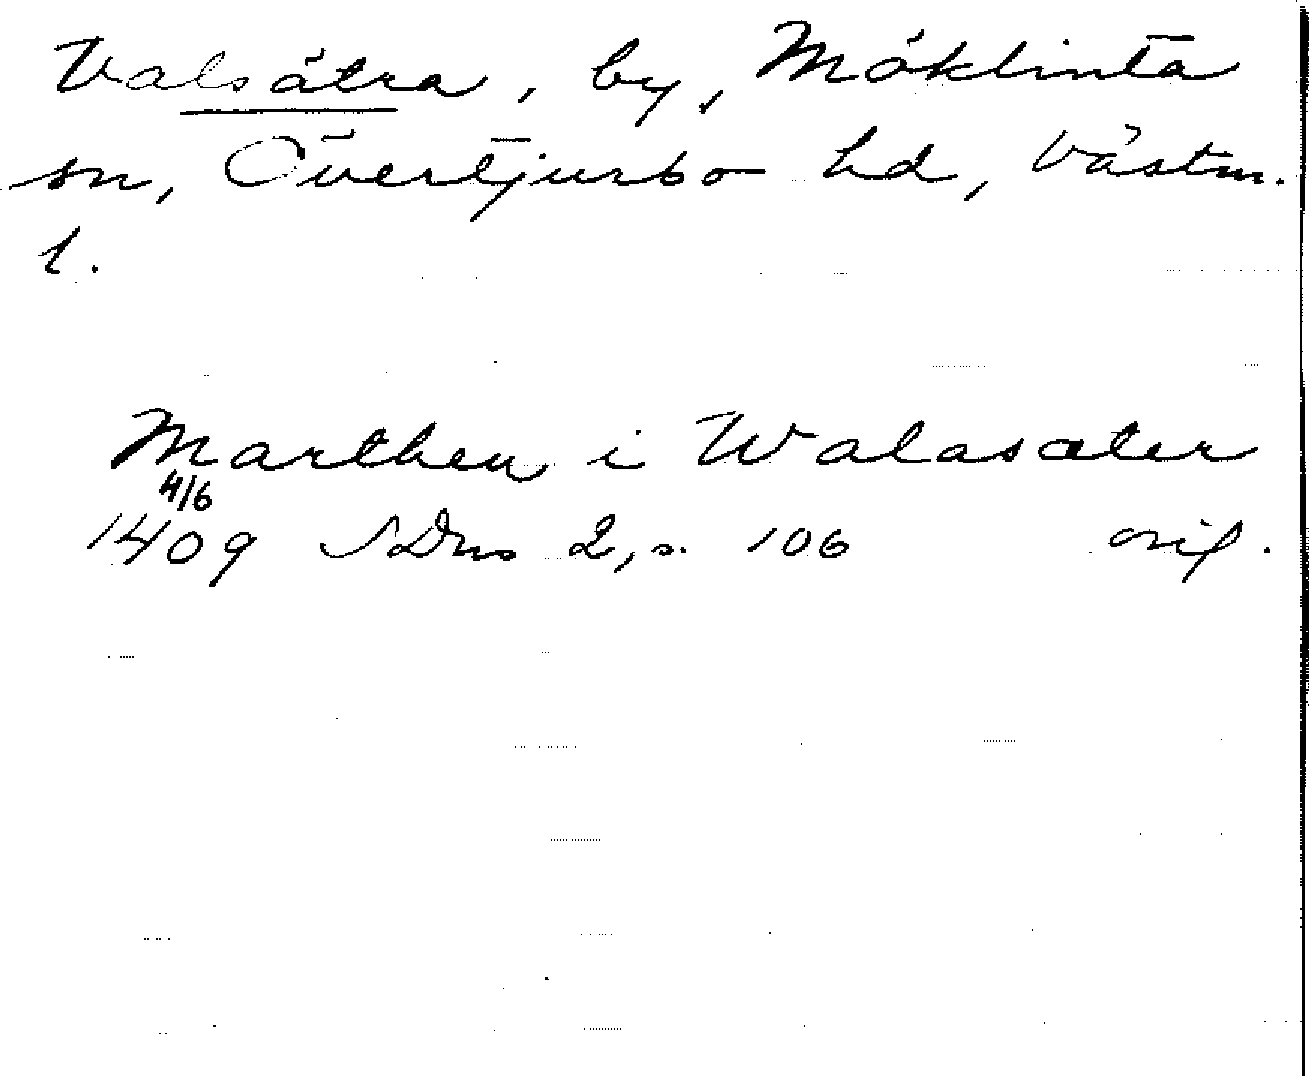 Valsätra, by, Möklinta
sn, Övertjurbo hd, Västm.
l.
Marthen i Walasæter
4/6
1409 SDns 2, s. 106 orig.